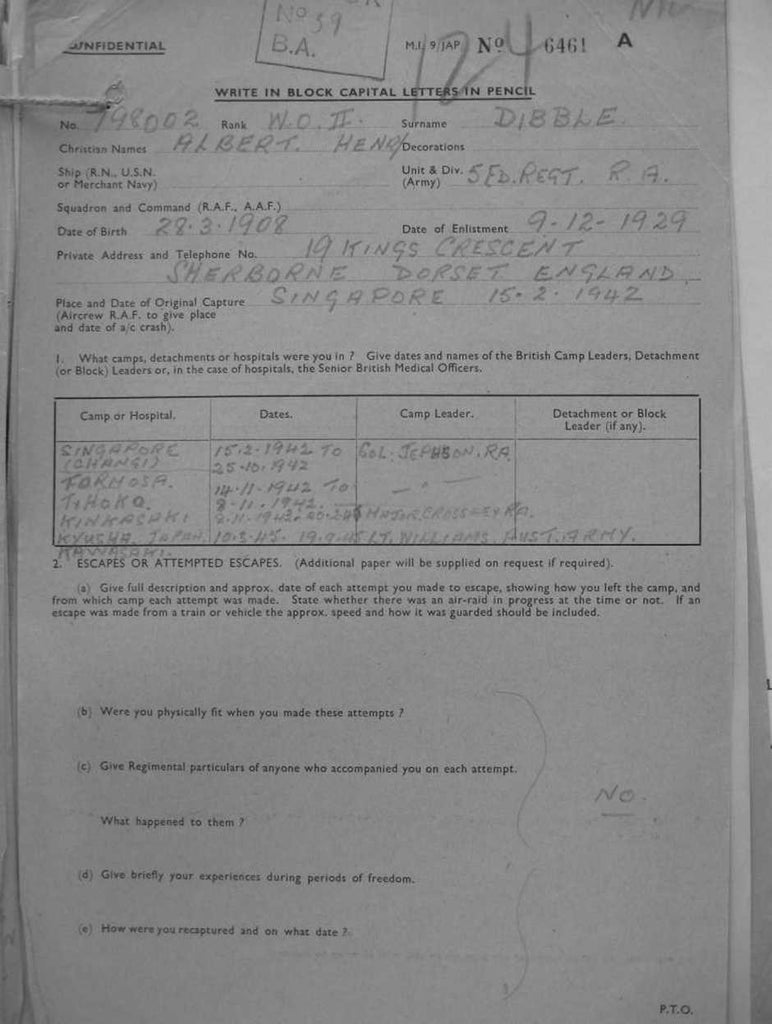 CONFIDENTIAL
No 59
B.A.
M.I. 9/JAP No 6461 A
124
WRITE IN BLOCK CAPITAL LETTERS IN PENCIL
No. 798002 Rank W.O.II. Surname DIBBLE.
Christian Names ALBERT. HENRY Decorations
Ship (R.N., U.S.N. or Merchant Navy)
Unit & Div. (Army) 5 FD. REGT. R.A.
Squadron and Command (R.A.F., A.A.F.)
Date of Birth 28.3.1908 Date of Enlistment 9-12-1929
Private Address and Telephone No. 19 KINGS CRESCENT
SHERBORNE DORSET ENGLAND
Place and Date of Original Capture SINGAPORE 15.2.1942
(Aircrew R.A.F. to give place
and date of a/c crash).
1. What camps, detachments or hospitals were you in ? Give dates and names of the British Camp Leaders, Detachment
(or Block) Leaders or, in the case of hospitals, the Senior British Medical Officers.
Camp or Hospital. Dates. Camp Leader. Detachment or Block Leader (if any).
SINGAPORE 15.2-1942 TO COL. JEPHSON. RA
(CHANGI) 25-10-1942
FORMOSA. 14-11-1942 TO — " —
TIHOKO. 9-11-1942.
KINKASAKI MAJOR CROSSLEY RA.
KYUSHU JAPAN. 10.3.45. LT. WILLIAMS. AUST. ARMY.
KAWASAKI.
2. ESCAPES OR ATTEMPTED ESCAPES. (Additional paper will be supplied on request if required).
(a) Give full description and approx. date of each attempt you made to escape, showing how you left the camp, and
from which camp each attempt was made. State whether there was an air-raid in progress at the time or not. If an
escape was made from a train or vehicle the approx. speed and how it was guarded should be included.
(b) Were you physically fit when you made these attempts ?
(c) Give Regimental particulars of anyone who accompanied you on each attempt.
NO.
What happened to them ?
(d) Give briefly your experiences during periods of freedom.
(e) How were you recaptured and on what date ?
P.T.O.